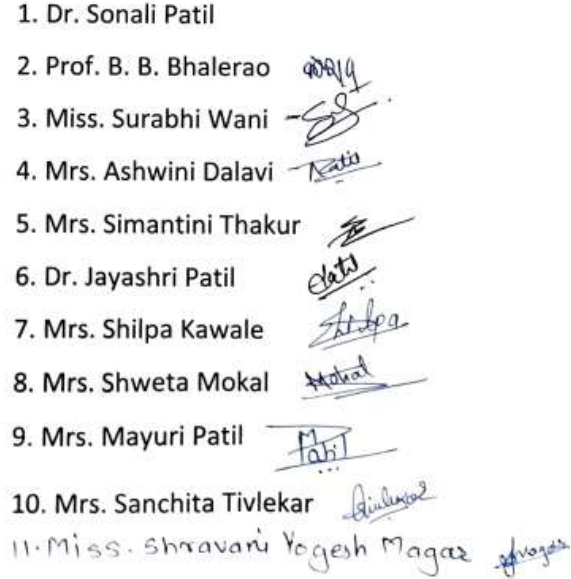 1. Dr. Sonali Patil
2. Prof. B. B. Bhalerao
3. Miss. Surabhi Wani
4. Mrs. Ashwini Dalavi
5. Mrs. Simantini Thakur
6. Dr. Jayashri Patil Patil
7. Mrs. Shilpa Kawale Shilpa
8. Mrs. Shweta Mokal Mokal
9. Mrs. Mayuri Patil Patil
10. Mrs. Sanchita Tivlekar
11. Miss. Shravani Yogesh Magar